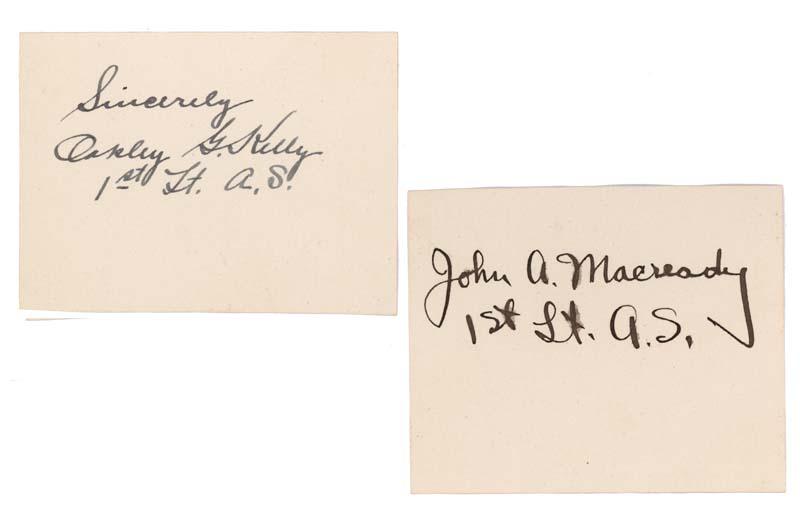 Sincerely
Oakley G. Kelly
1st Lt. A.S.
John A. Macready
1st Lt. A.S.